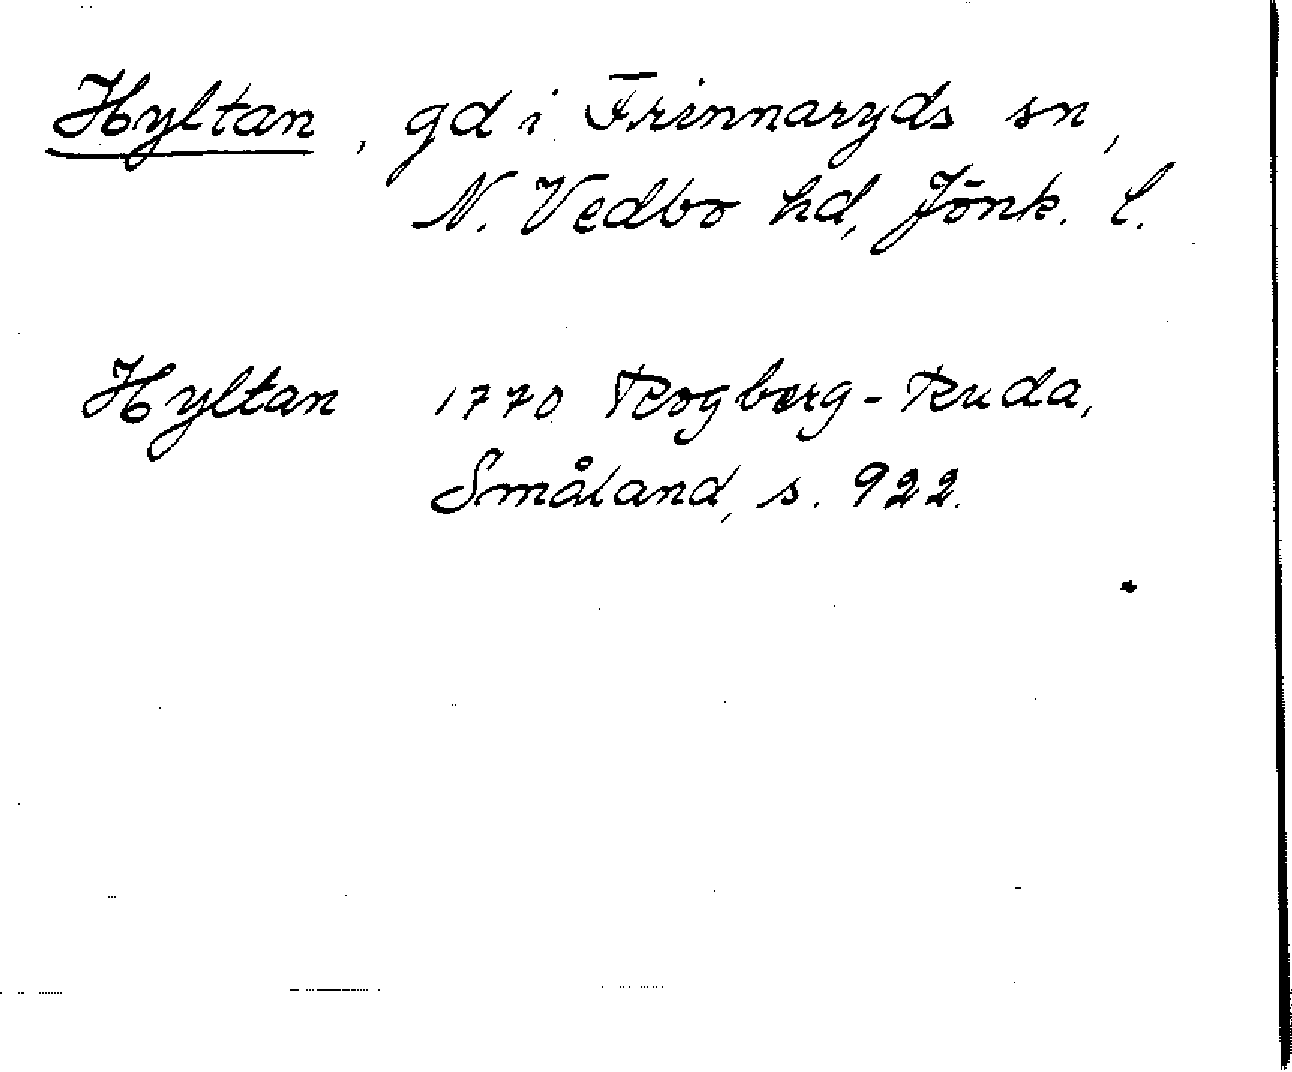 Hyltan, gd i Frinnaryds sn,
N. Vedbo hd, Jönk. l.
Hyltan 1770 Rogberg-Ruda,
Småland, s. 922.